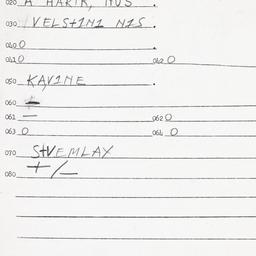 020 A HARIK, NUS .
030 VELSTINI NIS .
040 O .
041 O 042 O
050 KAVINE .
060 +
061 — 062 O
063 O 064 O
070 STVEMLAY
080 + / —